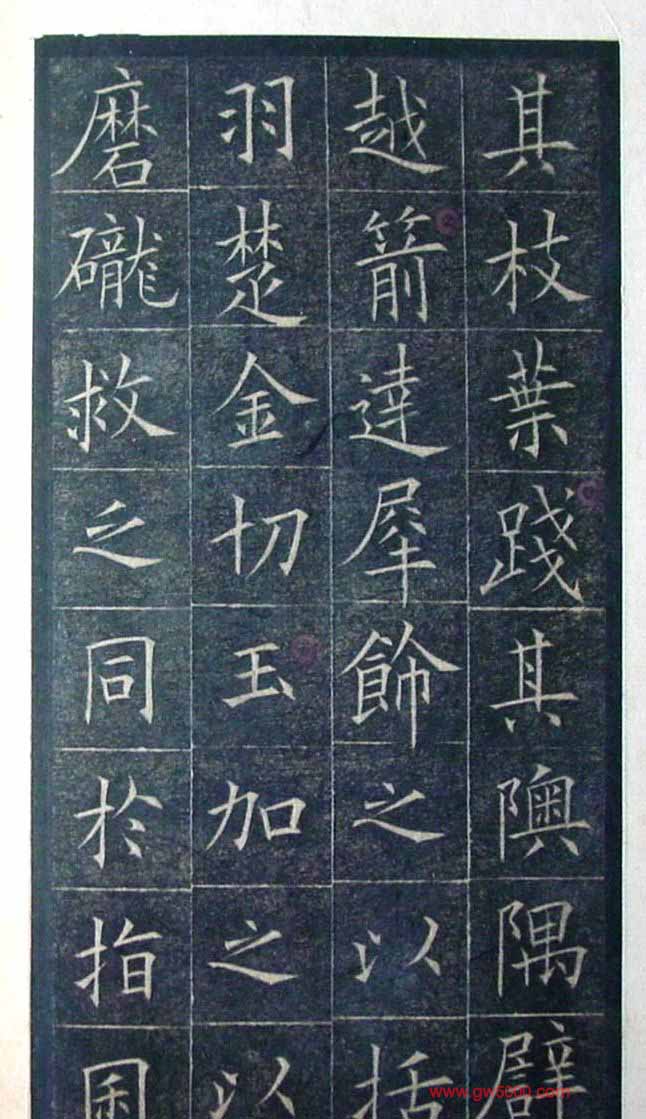 其枝葉踐其隩隅譬
越箭達犀飾之以括
羽楚金切玉加之以
磨礲救之同於指困
www.gw5000.com